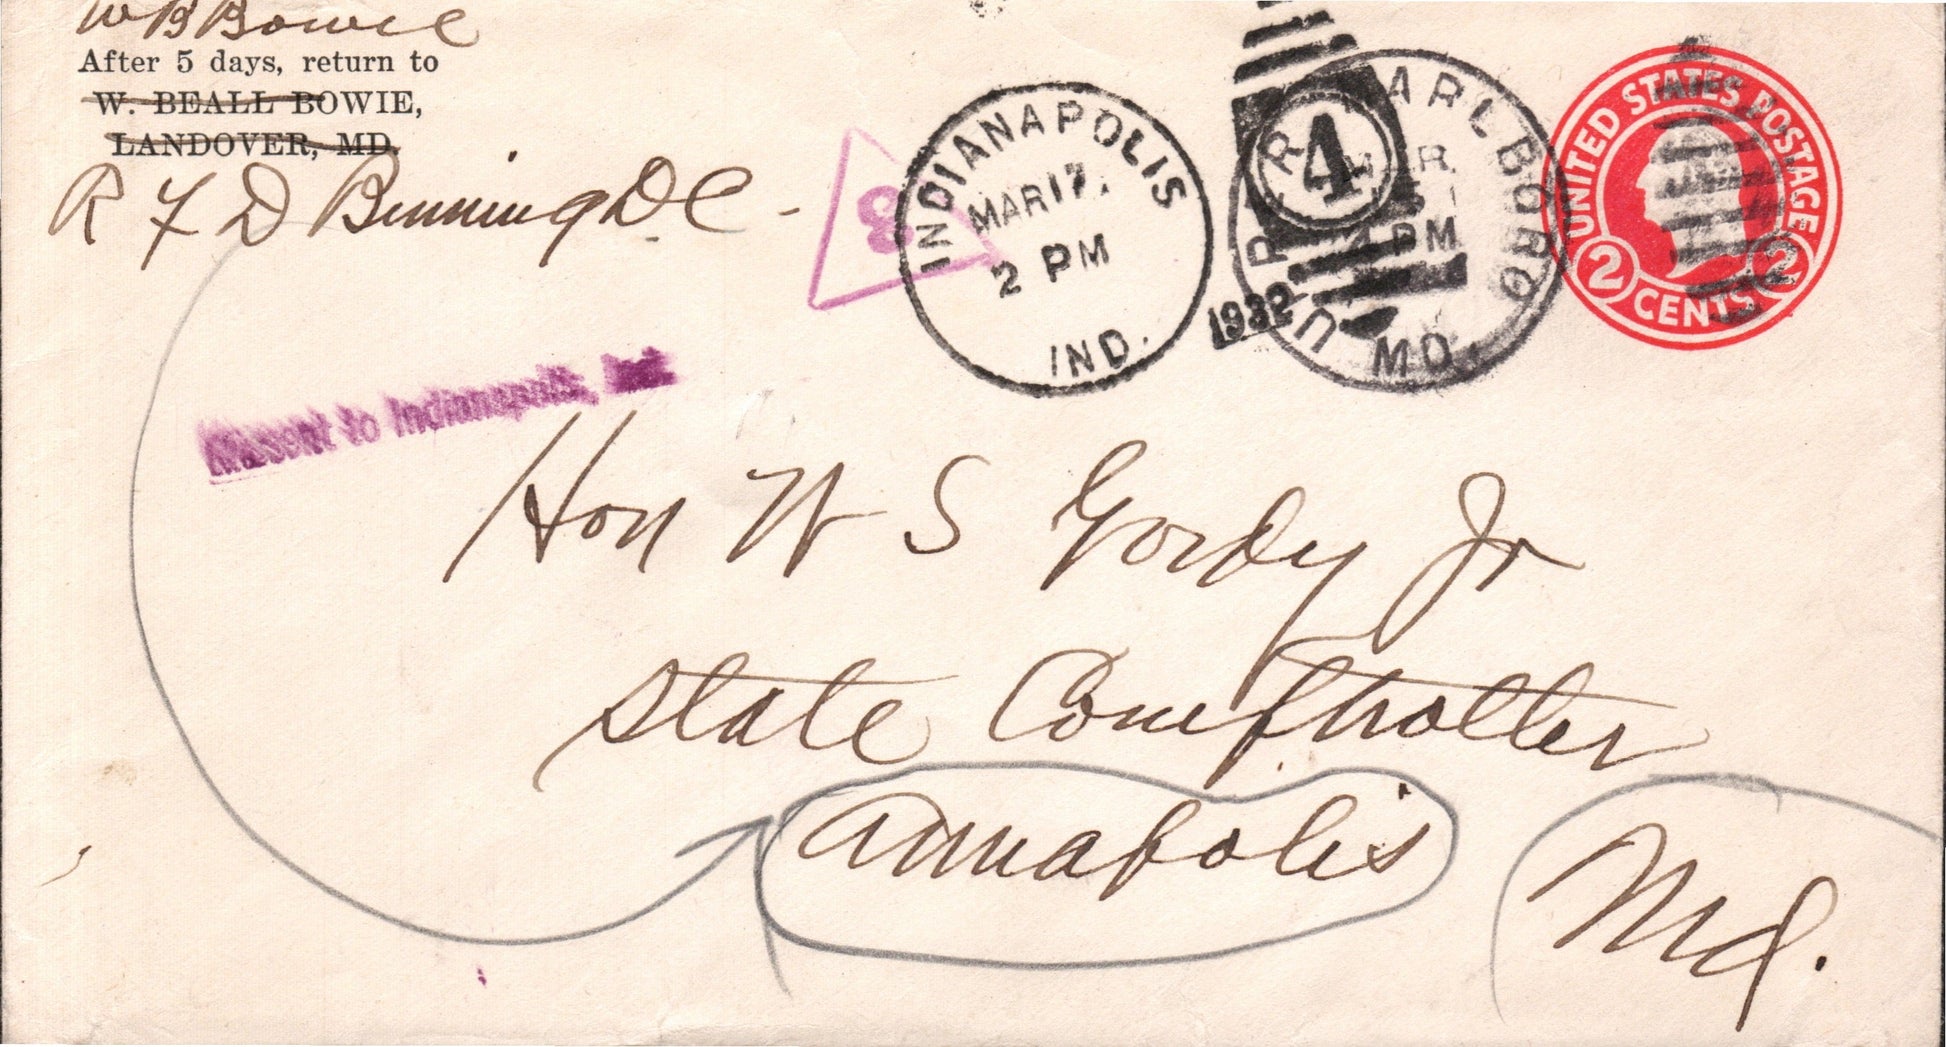 W B Bowie
After 5 days, return to
W. BEALL BOWIE,
LANDOVER, MD.
R F D Benning D.C.
3
INDIANAPOLIS
MAR 17.
2 PM
IND.
1932
4
UPPER MARLBORO
MAR
PM
MD.
UNITED STATES POSTAGE
2 CENTS 2
Missent to Indianapolis, Ind.
Hon W S Gordy Jr
State Comptroller
Annapolis
Md.